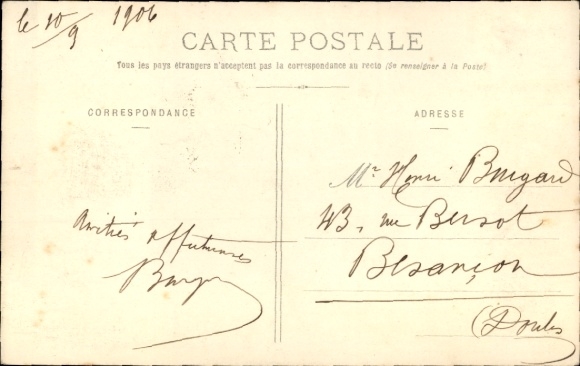 le 10/9 1906
CARTE POSTALE
Tous les pays étrangers n'acceptent pas la correspondance au recto (Se renseigner à la Poste)
CORRESPONDANCE
Amitiés affectueuses
ADRESSE
Mr Henri
43, rue Bersot
Besançon
(Doubs)